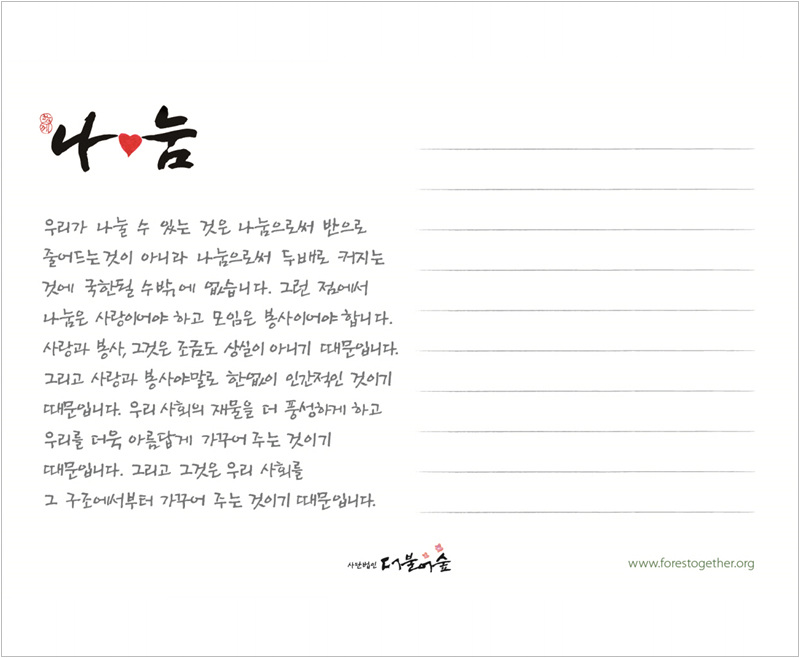 나눔
우리가 나눌 수 있는 것은 나눔으로써 반으로
줄어드는것이 아니라 나눔으로써 두배로 커지는
것에 국한될 수밖에 없습니다. 그런 점에서
나눔은 사랑이어야 하고 모임은 봉사이어야 합니다.
사랑과 봉사, 그것은 조금도 상실이 아니기 때문입니다.
그리고 사랑과 봉사야말로 한없이 인간적인 것이기
때문입니다. 우리 사회의 재물을 더 풍성하게 하고
우리를 더욱 아름답게 가꾸어 주는 것이기
때문입니다. 그리고 그것은 우리 사회를
그 구조에서부터 가꾸어 주는 것이기 때문입니다.
사단법인 더불어숲
www.forestogether.org